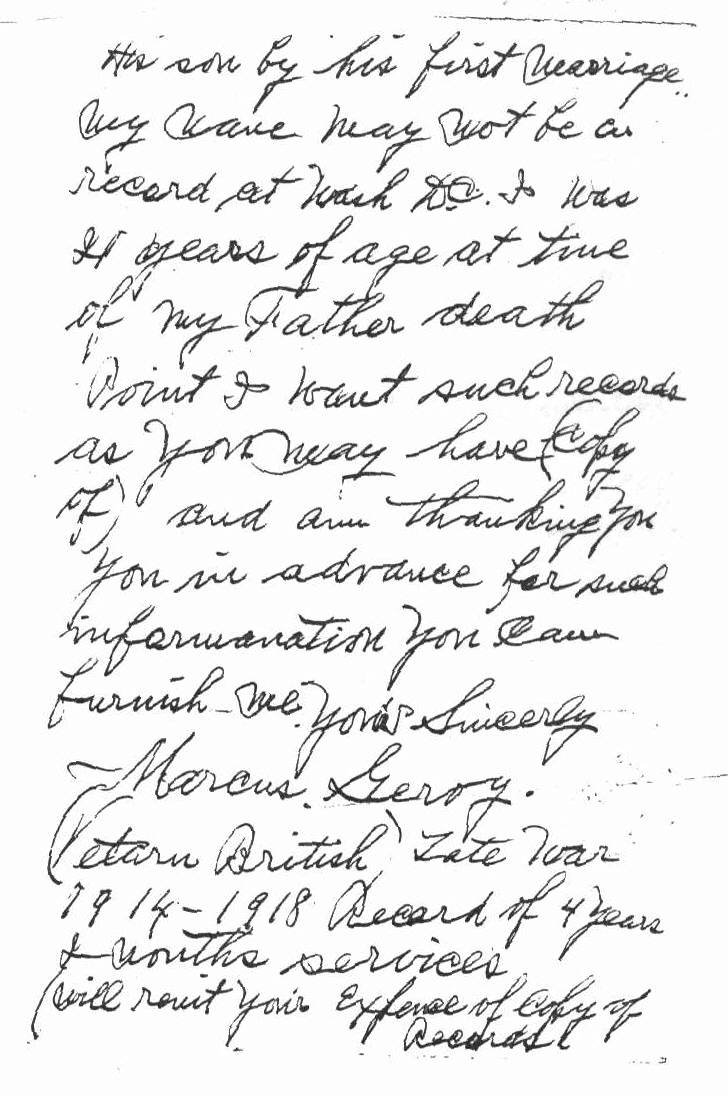 His son by his first Marriage.
My Name May Not be on
record at Wash D.C. I was
21 years of age at time
of my Father death
Point I want such records
as You May have (Copy
of) and am thanking You
You in advance for such
informanation You Can
furnish Me. Yours Sincerly
Marcus Geroy.
(Vetarn British) Late War
1914-1918 Record of 4 Years
& Months services
(Will remit Your Expence of Copy of
Records